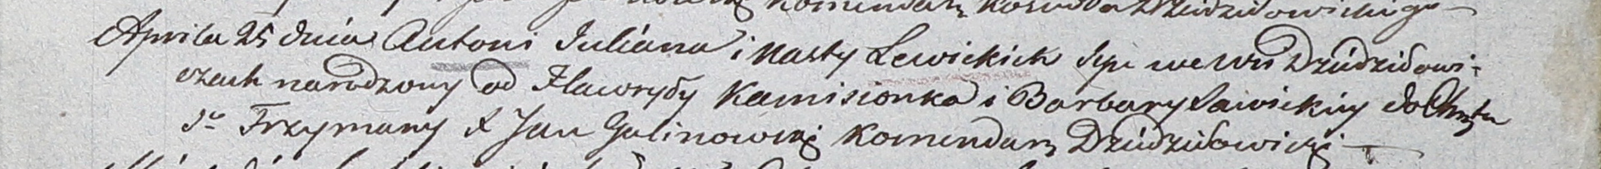 Komendarz Kosciola Dziedziłowickiego
Aprila 25 dnia Antoni Juliana i Nasty Lewickich Syn we wsi Dziedziłowi-
czach narodzony od Hawryły Kamisionka i Barbary Sawickiey do Chrztu
Sgo Trzymany X Jan Galinowski Komendarz Dziedziłowicki